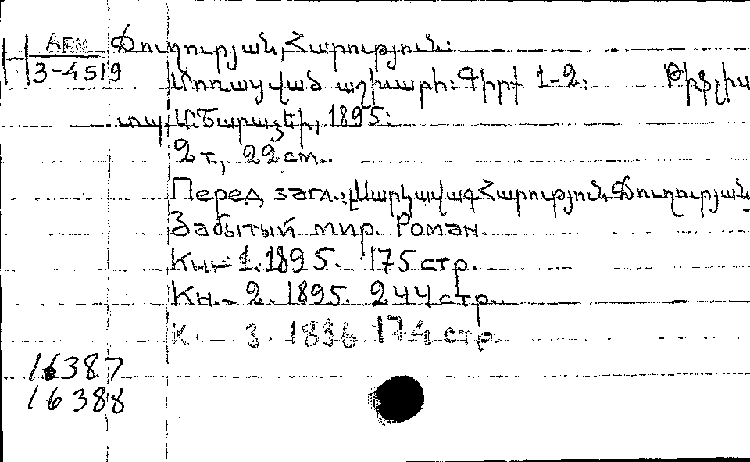 АЕМ
3-4519
Ծուղուրյան, Հարություն:
Մոռացված աշխարհ: Գիրք 1-2. Թիֆլիս
տպ. Մ. Շարաձեի, 1895:
2 т., 22 cm.
Перед загл.: Սարկավագ Հարություն Ծուղուրյան
Забытый мир. Роман.
Кн.- 1. 1895. 175 стр.
Кн.- 2. 1895. 244 стр.
К. - 3. 1896 174 стр.
16387
16388